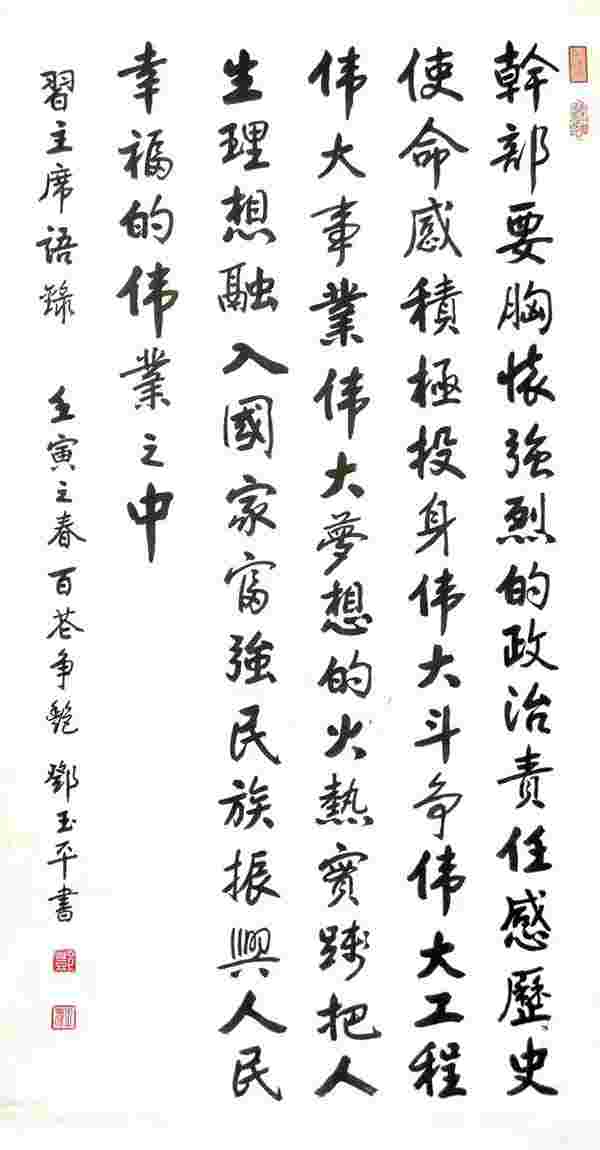 幹部要胸懷強烈的政治責任感歷史
使命感積極投身伟大斗争伟大工程
伟大事業伟大夢想的火熱實踐把人
生理想融入國家富強民族振興人民
幸福的伟業之中
習主席語錄 壬寅之春百花争艷 鄧玉平書